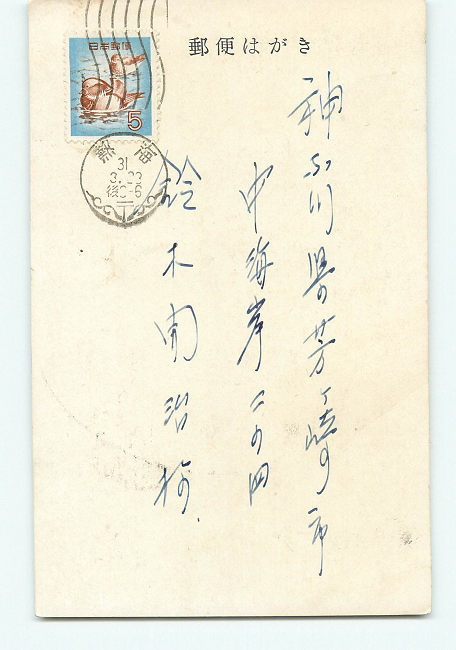 郵便はがき
日本郵便
5
熱海
31.
3.23
後0-6
神奈川県茅ヶ崎市
中海岸二の四
鈴木開治様